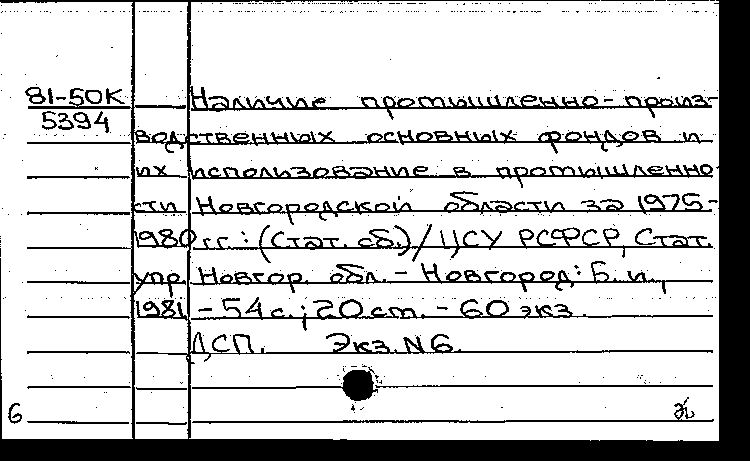 81-50К
5394
Наличие промышленно-произ-
водственных основных фондов и
их использование в промышленно-
сти Новгородской области за 1975-
1980 гг.: (Стат. сб.) / ЦСУ РСФСР, Стат.
упр. Новгор. обл. - Новгород: Б. и.,
1981. - 54 с.; 20 см. - 60 экз.
ДСП. Экз. N 6.
6